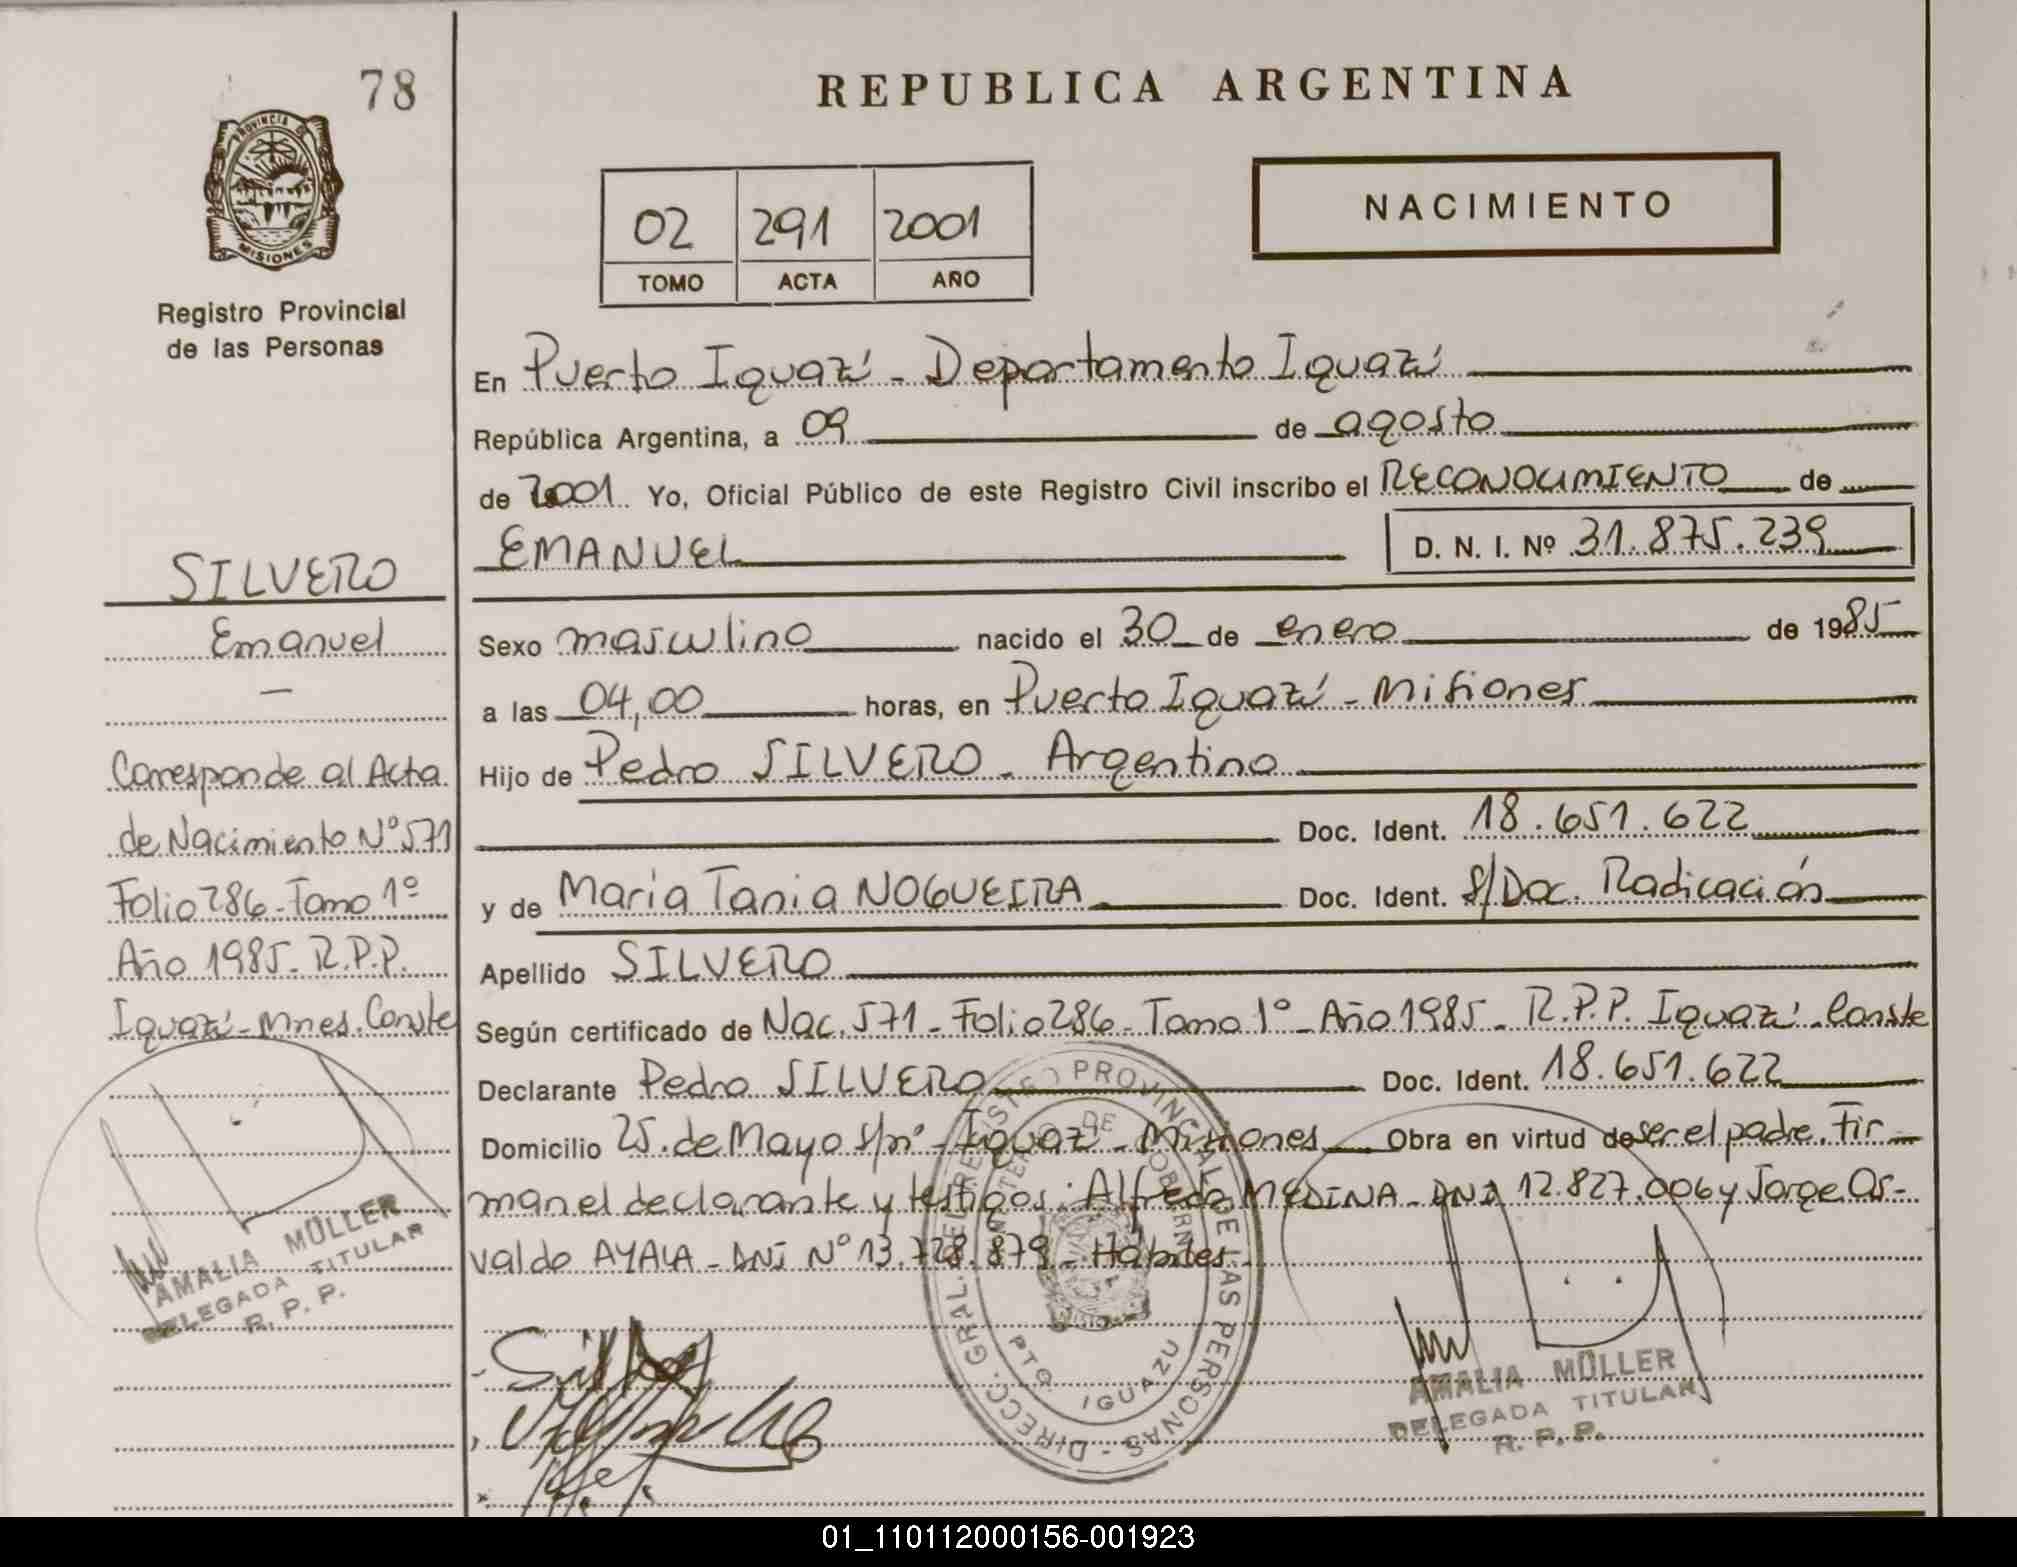 78
PROVINCIA DE
MISIONES
Registro Provincial
de las Personas
SILVERO
Emanuel
—
Corresponde al Acta
de Nacimiento Nº 571
Folio 286 - Tomo 1º
Año 1985 - R.P.P.
Iguazú - Mnes. Conste
AMALIA MÜLLER
DELEGADA TITULAR
R. P. P.
REPUBLICA ARGENTINA
02 291 2001
TOMO ACTA AÑO
NACIMIENTO
En Puerto Iguazú - Departamento Iguazú
República Argentina, a 09 de agosto
de 2001 Yo, Oficial Público de este Registro Civil inscribo el RECONOCIMIENTO de
EMANUEL D. N. I. Nº 31.875.239
Sexo masculino nacido el 30 de enero de 1985
a las 04,00 horas, en Puerto Iguazú - Misiones
Hijo de Pedro SILVERO - Argentino
Doc. Ident. 18.651.622
y de María Tania NOGUEIRA Doc. Ident. s/Doc. Radicación
Apellido SILVERO
Según certificado de Nac. 571 - Folio 286 - Tomo 1º - Año 1985 - R.P.P. Iguazú - Conste
Declarante Pedro SILVERO Doc. Ident. 18.651.622
Domicilio 25 de Mayo s/nº - Iguazú - Misiones Obra en virtud de ser el padre. Fir-
man el declarante y testigos: Alfredo MEDINA - DNI 12.827.006 y Jorge Os-
valdo AYALA - DNI Nº 13.728.879 - Hábiles
DIRECC. GRAL. DE REGISTRO PROVINCIAL DE LAS PERSONAS
MINISTERIO DE GOBIERNO
PTO IGUAZU
AMALIA MÜLLER
DELEGADA TITULAR
R. P. P.
01_110112000156-001923